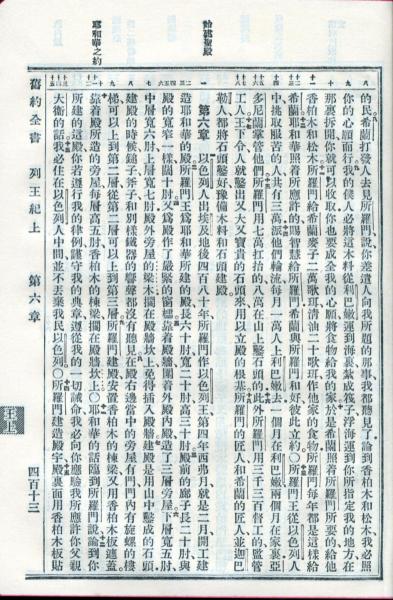 的民希蘭打發人去見所羅門說你差遣人向我所題的那事我都聽見了論到香柏木和松木我必照
你的心願而行我的僕人必將這木料從利巴嫩運到海裏紮成筏子浮海運到你所指定我的地方在
那裏拆開你就可以收取你也要成全我的心願將食物給我的家於是希蘭照着所羅門所要的給他
香柏木和松木所羅門給希蘭麥子二萬歌珥清油二十歌珥作他家的食物所羅門每年都是這樣給
希蘭耶和華照着所應許的賜智慧給所羅門希蘭與所羅門和好彼此立約○所羅門王從以色列人
中挑取服苦的人共有三萬派他們輪流每月一萬人上利巴嫩去一個月在利巴嫩兩個月在家裏亞
多尼蘭掌管他們所羅門用七萬扛抬的八萬在山上鑿石頭的此外所羅門用三千三百督工的監管
工人王下令人就鑿出又大又寶貴的石頭來用以立殿的根基所羅門的匠人和希蘭的匠人並迦巴
勒人都將石頭鑿好豫備木料和石頭建殿
第六章 以色列人出埃及地後四百八十年所羅門作以色列王第四年西弗月就是二月開工建
造耶和華的殿所羅門王爲耶和華所建的殿長六十肘寬二十肘高三十肘殿前的廊子長二十肘與
殿的寬窄一樣闊十肘又爲殿作了嚴緊的窗櫺靠着殿牆圍着外殿內殿造了三層旁屋下層寬五肘
中層寬六肘上層寬七肘殿外旁屋的梁木擱在殿牆坎上免得插入殿牆殿是用山中鑿成的石頭
建殿的時候鎚子斧子和別樣鐵器的響聲都沒有聽見在殿右邊當中的旁屋有門門內有旋螺的樓
梯可以上到第二層從第二層可以上到第三層所羅門建殿安置香柏木的棟梁又用香柏木板遮蓋
靠着殿所造的旁屋每層高五肘香柏木的棟梁擱在殿牆坎上○耶和華的話臨到所羅門說論到你
所建的這殿你若遵行我的律例謹守我的典章遵從我的一切誡命我必向你應驗我所應許你父親
大衛的話我必住在以色列人中間並不丟棄我民以色列○所羅門建造殿宇殿裏面用香柏木板貼
始建聖殿
耶和華之約
舊約全書 列王紀上 第六章
王上
四百十三